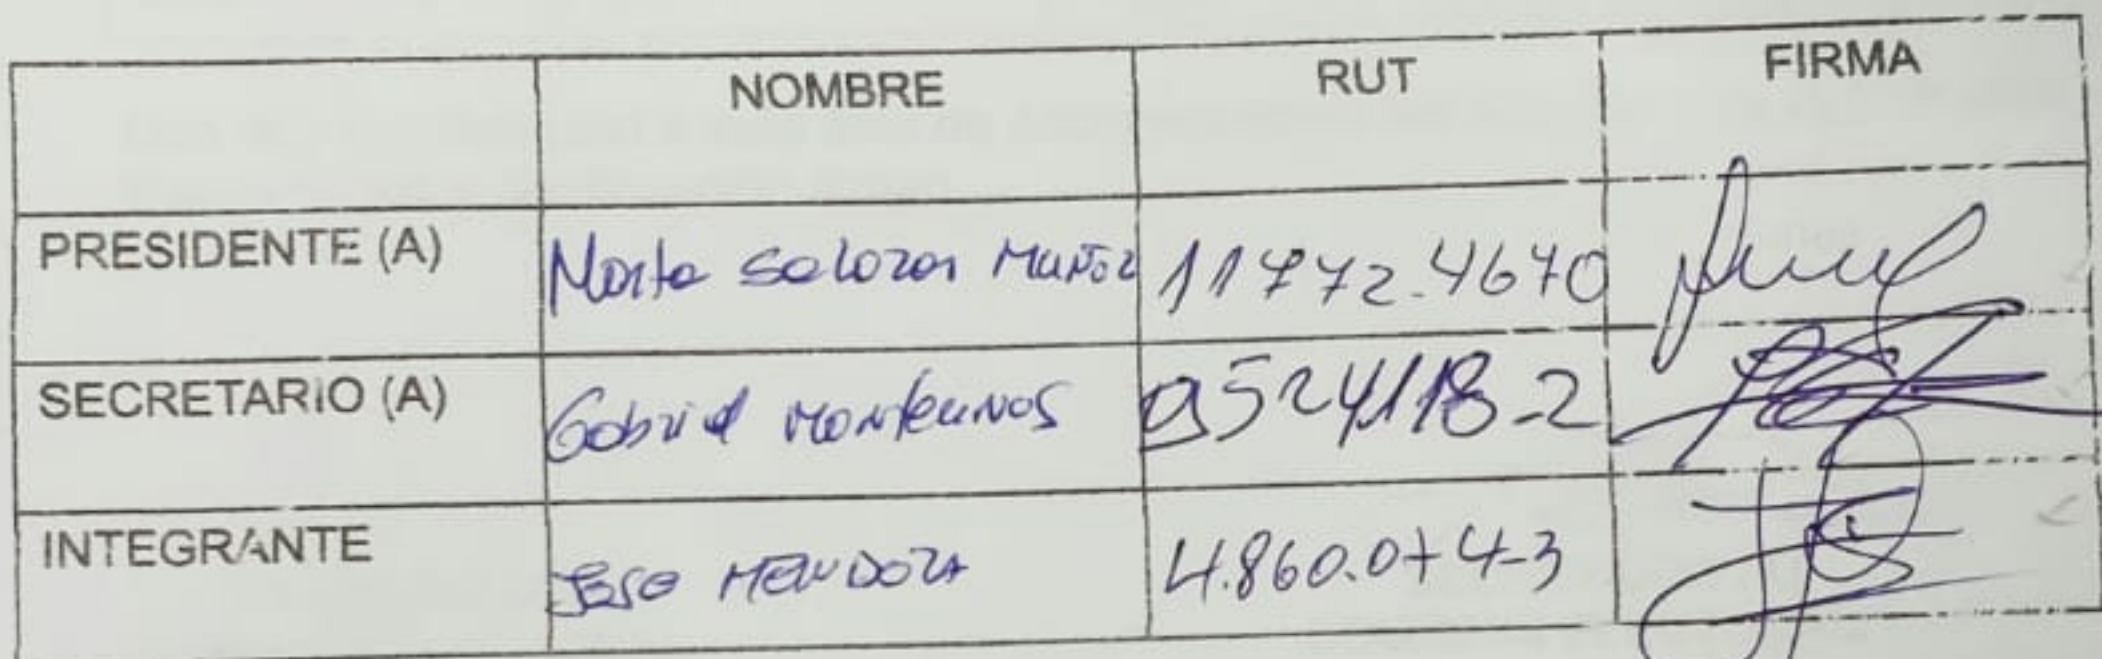 NOMBRE RUT FIRMA
PRESIDENTE (A) Marta Salazar Muñoz 11772.4670
SECRETARIO (A) Gabriel Montecinos 9524118-2
INTEGRANTE MENDOZA 4.860.074-3